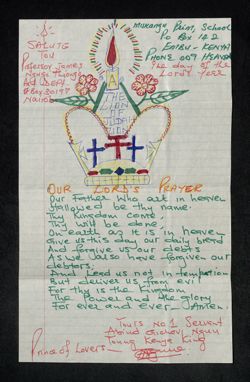 SALUTE
You
Professor James
Box 30197
Nairobi
Primary School
Po Box 122
EMBU - KENYA
PHONE 009 HEAVEN
The day of the
Lord's Year
A
THE
LION
OF
JUDAH
OUR LORD'S PRAYER
Our Father Who art in heaven
Hallowed be thy name.
Thy Kingdom come,
Thy will be done,
On earth as it is in heaven
Give us this day our daily bread
And forgive us our debts
As we also have forgiven our
debtors;
And Lead us not in temptation
But deliver us from evil
For thy is the Kingdom
The Power and the glory
For ever and ever - AMEN
Yours No 1 Servent
Young Kenya King
Prince of Lovers